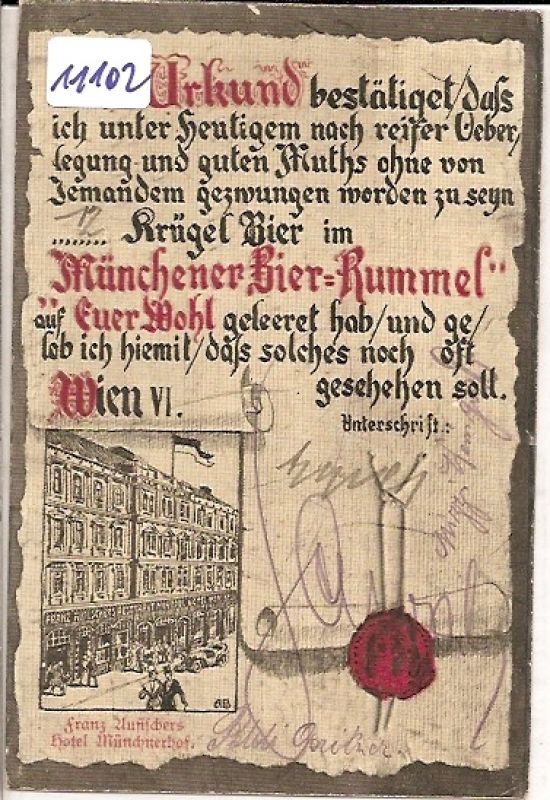 11102
Urkund bestätiget/daſs
ich unter Heutigem nach reifer Ueber/
legung und guten Muths ohne von
Jemandem gezwungen worden zu seyn
12 ........ Krügel Bier im
"Münchener-Bier=Rummel"
auf Euer Wohl geleeret hab/und ge/
lob ich hiemit/daſs solches noch oft
Wien VI. geschehen soll.
Unterschrift:
Franz Aufischers
Hotel Münchnerhof.